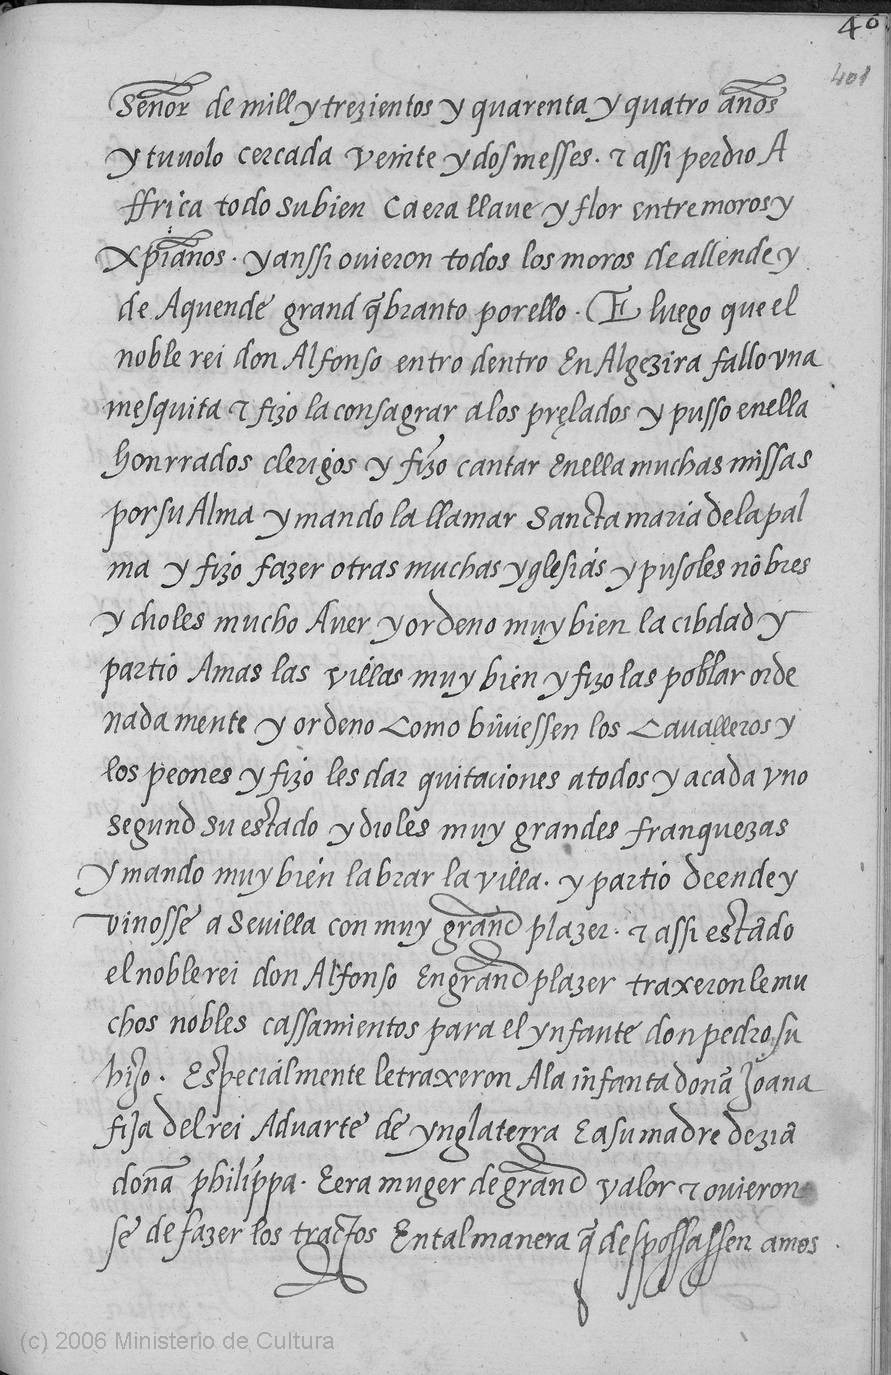 40
401
Señor de mill y trezientos y quarenta y quatro años
y tuuolo cercada veinte y dos messes. τ assi perdio A
ffrica todo su bien Ca era llaue y flor entre moros y
xp̃ianos. y anssi ouieron todos los moros de allende y
de Aquende grand q̃branto por ello. E luego que el
noble rei don Alfonso entro dentro En Algezira fallo vna
mesquita τ fizo la consagrar a los pręlados y pusso en ella
honrrados clerigos y fizo cantar En ella muchas missas
por su Alma y mando la llamar Sancta maria de la pal
ma y fizo fazer otras muchas yglesias y pusoles nõbres
y dioles mucho Auer y ordeno muy bien la cibdad y
partio Amas las villas muy bien y fizo las poblar orde
nada mente y ordeno Como biuiessen los Caualleros y
los peones y fizo les dar quitaciones a todos y a cada vno
segund su estado y dioles muy grandes franquezas
y mando muy bien labrar la villa. y partio deende y
vinosse a Seuilla con muy grand plazer. τ assi estãdo
el noble rei don Alfonso En grand plazer traxeron le mu
chos nobles cassamientos para el ynfante don pedro su
hijo. Especialmente le traxeron A la infanta doña Joana
fija del rei Aduarte de ynglaterra E a su madre deziã
doña philippa. E era muger de grand valor τ ouieron
se de fazer los tractos En tal manera q̃ despossassen amos
(c) 2006 Ministerio de Cultura